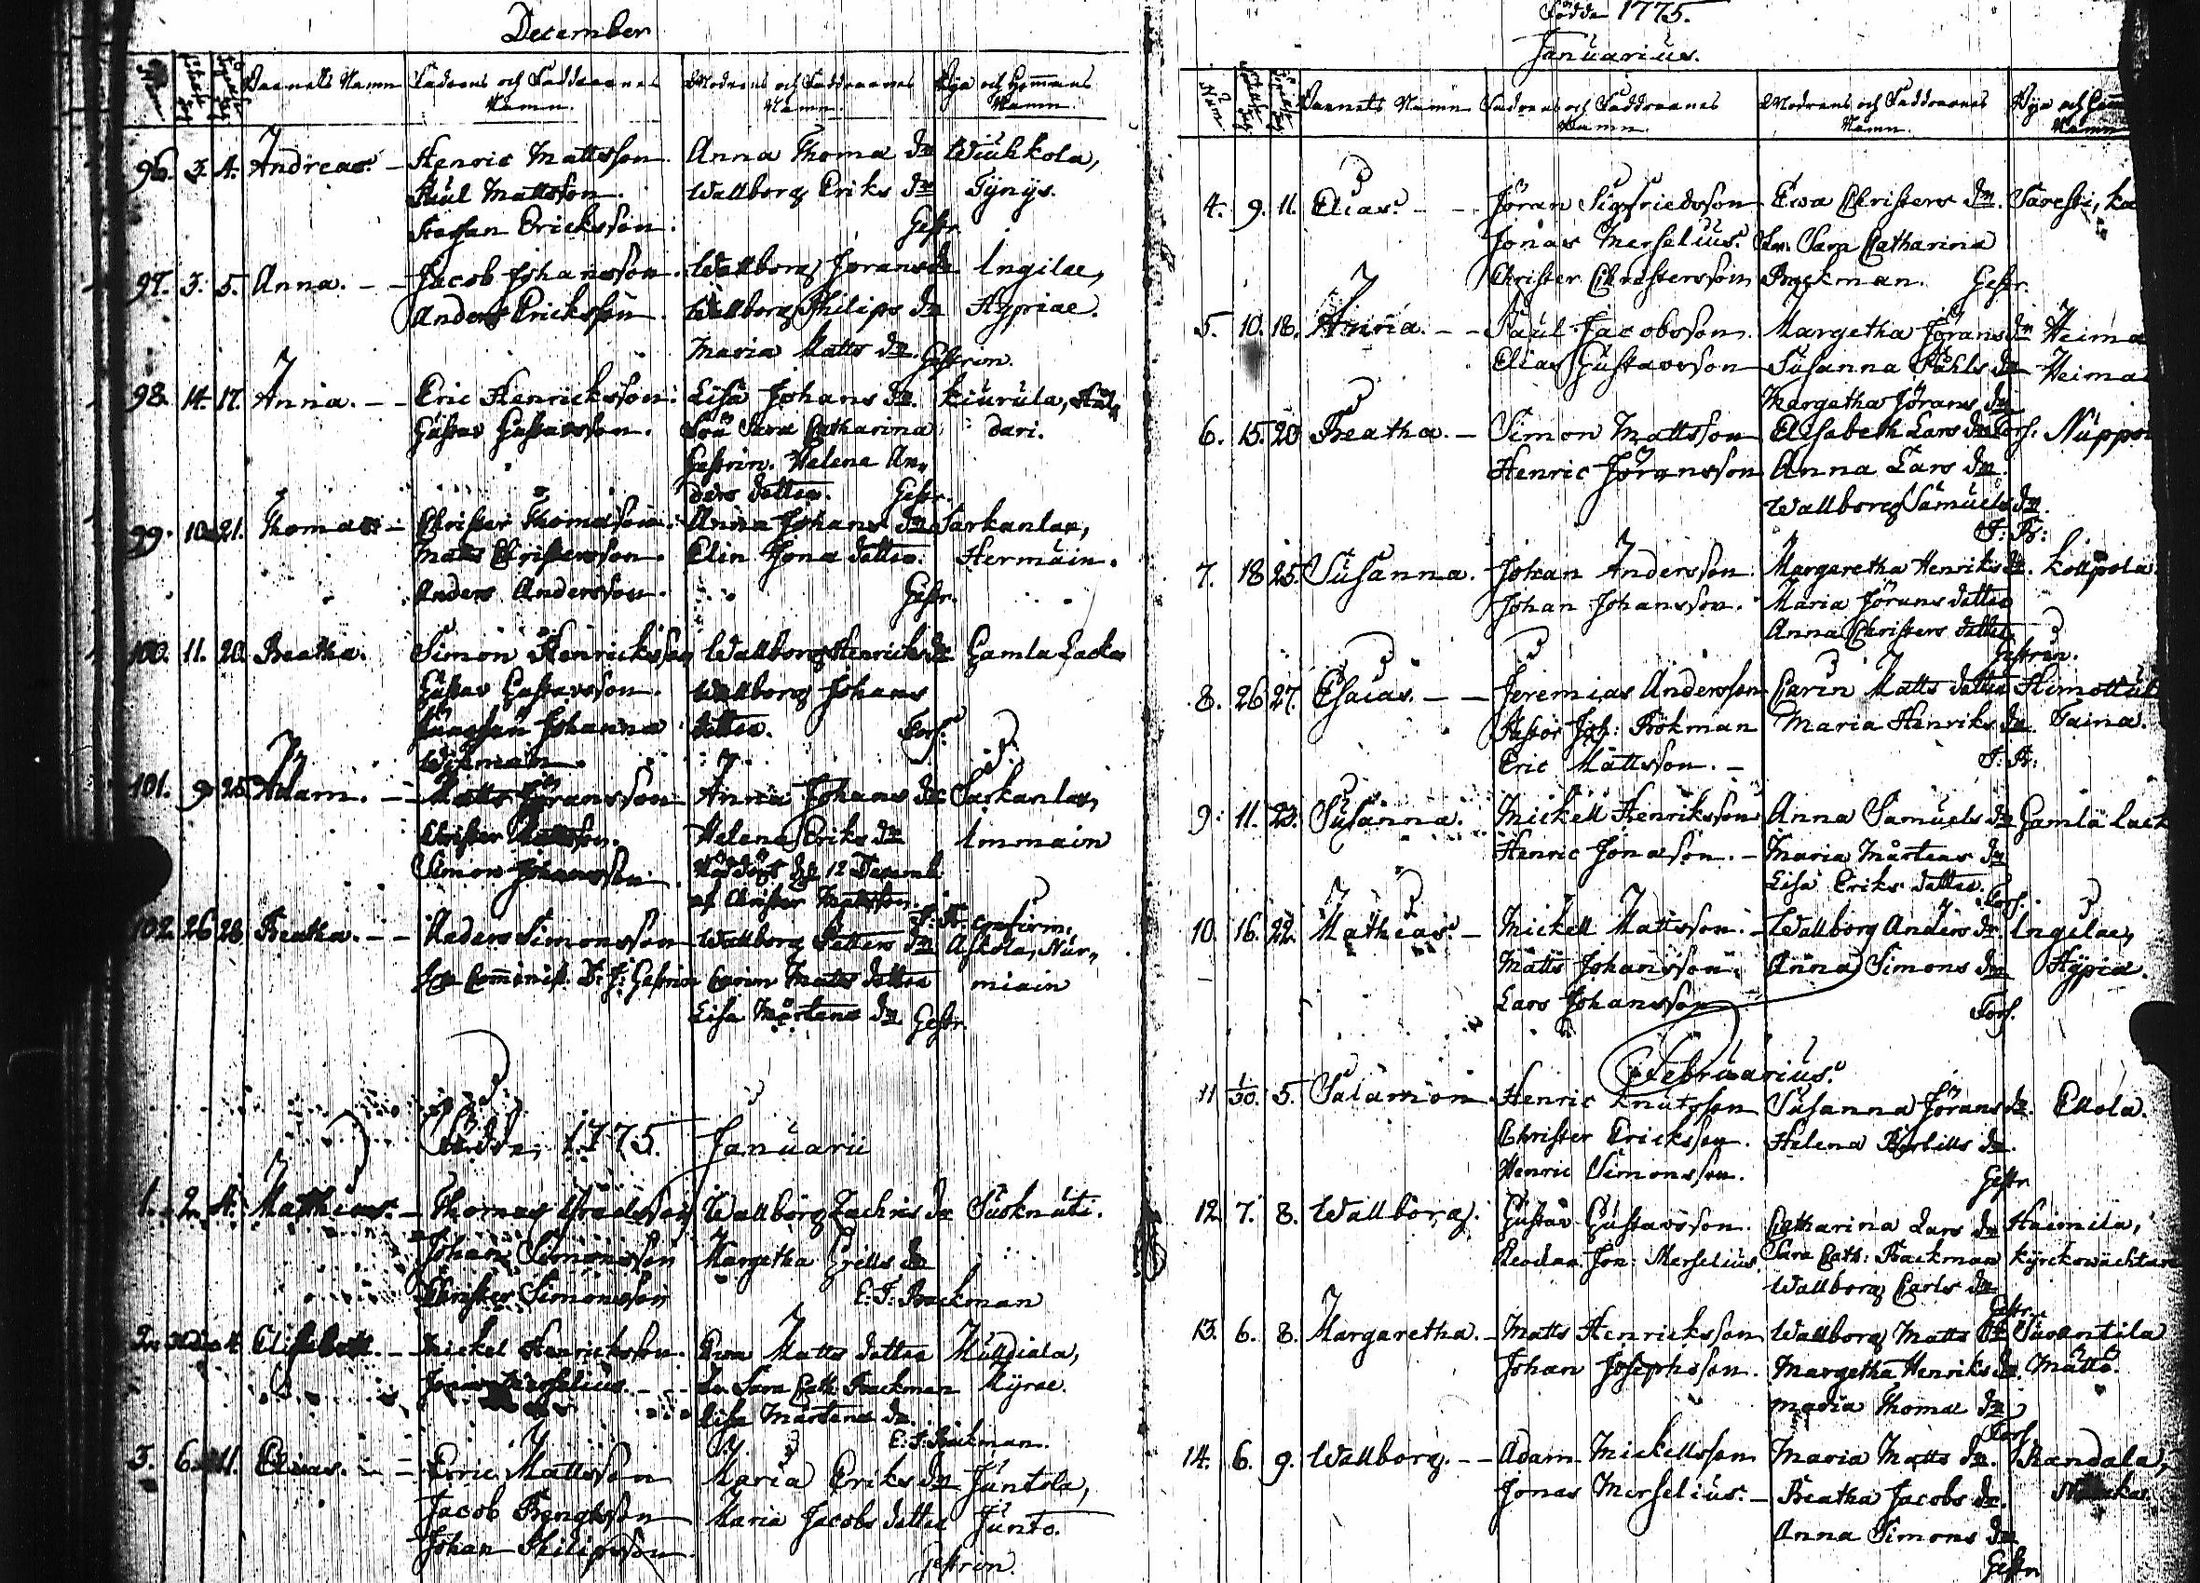 December
Barnets Namn Fadrens och Faddrarnes Modrens och Faddrarnes Bya och Hemmans
Namn. Namn. Namn.
96. 3. 4. Andreas. - Henric Mattsson Anna Thomæ dr Wiuhkola,
Paul Mattsson Wallborg Eriks dr Tynys.
Staffan Ericksson. Gestr.
97. 3. 5. Anna. - - Jacob Johansson. Wallborg Jörans dr Ingilæ,
Anders Ericksson. Wallborg Philips dr Hypriæ.
Maria Matts dr. Gestrin.
98. 14. 17. Anna. - - Eric Henricksson. Lisa Johans dr. Kiurula,
Gustav Gustavsson. Fru Sara Catharina dari.
Gestrin. Helena An-
ders dotter. Gestr.
99. 10. 21. Thomas - Christer Thomasson. Anna Johans dr Sarkanlax,
Matts Christersson. Elin Jona dotter. Hermain.
Anders Andersson. Gestr.
100. 11. 20. Beatha. Simon Henricksson Wallborg Henricks dr Gamla Lacka
Gustav Gustavsson. Wallborg Johans
Johanna dotter. Fors.
Wikman.
101. 9. 25. Adam. - - Matts Jöransson Anna Johans dr Sarkanlax,
Christer Mattsson. Helena Eriks dr Immain
Simon Johansson. Nöddöpt d. 12 Decemb.
af Christer Mattsson.
confirm.
102. 26 28 Beatha. - - Anders Simonsson Wallborg Petters dr Askola, Nur-
Comminist. D: J: Gestrin Carin Matts dotter miain
Lisa Mårtens dr Gestr.
Födde, 1775. Januarii
1. 2. 4. Mathias. - Thomas Wallborg Zachris dr Suoknuti.
Johan Simonsson Margetha Grells dr
Christer Simonsson E: J: Backman
2. 4. Elisabeth. - Mickel Henricksson. Ewa Matts dotter Muldiala,
Jonas Merselius. - - Sara Cath Backman Myræ.
Lisa Mårtens dr.
E: J: Backman.
3. 6. 11. Elias. - - Eric Mattsson Maria Eriks dr Juntola,
Jacob Bengtsson Maria Jacobs dotter Junto.
Johan Philipsson. Gestrin.
Födda 1775.
Januarius.
Barnets Namn Fadrens och Faddrarnes Modrens och Faddrarnes Bya och Hem
Namn. Namn. Namn
4. 9. 11. Elias. - - Jöran Sigfriedsson Ewa Christers dr.
Jonas Merselius. Sara Catharina
Christer Christersson Backman. Gestr.
5. 10. 18. Anna. - - Paul Jacobsson. Margetha Jörans dr Heima
Elias Gustavsson Susanna Påhls dr Heima
Margetha Jörans dr
6. 15. 20 Beatha. - Simon Mattsson Elisabeth Lars dr Fors. Nuppo
Henric Jöransson Anna Lars dr.
Wallborg Samuels dr.
7. 18 25. Susanna. Johan Andersson Margaretha Henriks dr. Kolppola
Johan Johansson. Maria Jörans dotter
Anna Christers dotter
Gestrin.
8. 26 27. Esaias. - - Jeremias Andersson Carin Matts dotter Himottu
Pastor Joh: Bökman Maria Henriks dr. Taina.
Eric Mattsson. -
9. 11. 23. Susanna. Mickell Henriksson Anna Samuels dr Gamla lack
Henric Jonasson. - Maria Mårtens dr
Lisa Eriks dotter. Fors.
10. 16. 22. Mathias. - Mickell Mattsson. - Wallborg Anders dr. Ingilæ,
Matts Johansson. Anna Simons dr Hypiæ.
Lars Johansson Fors.
Februarius.
11 1/30. 5. Salamon Henric Knutsson Susanna Jörans dr. Ellola.
Christer Ericksson. Helena Bertills dr.
Henric Simonsson. Gestr
12. 7. 8. Wallborg. Gustav Gustavsson. Catharina Lars dr Haimila,
Jon: Merselius. Sara Cath: Backman Kyrckowächtare
Wallborg Carls dr
Gestr.
13. 6. 8. Margaretha. - Matts Henricksson Wallborg Matts dr Suvantila
Johan Josephsson. Margetha Henriks dr. Mattö.
Maria Thomæ dr
Fors.
14. 6. 9. Wallborg. - - Adam Mickellsson Maria Matts dr. Kandala,
Jonas Merselius. - Beatha Jacobs dr.
Anna Simons dr
Gestr